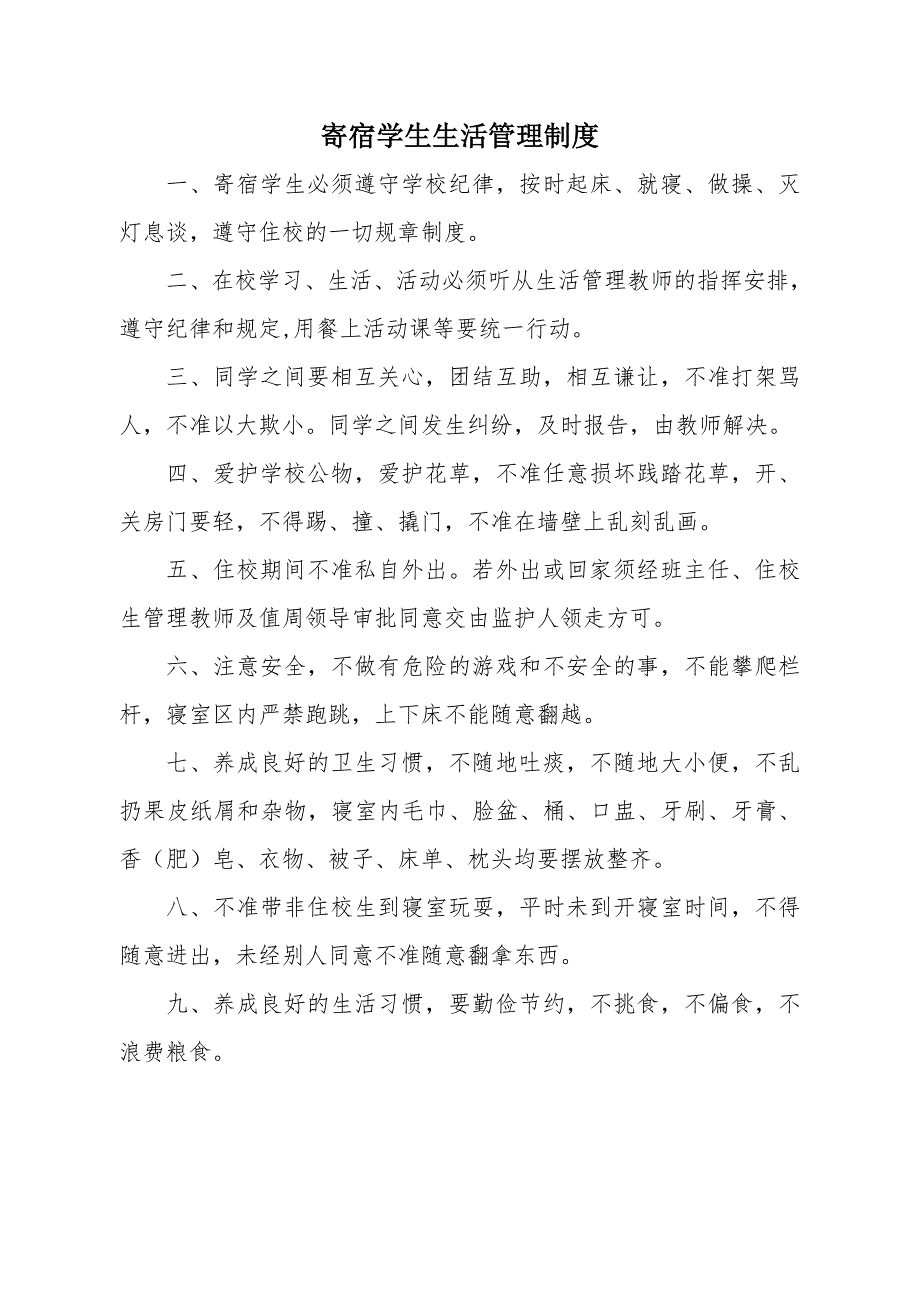 寄宿学生生活管理制度
一、寄宿学生必须遵守学校纪律，按时起床、就寝、做操、灭
灯息谈，遵守住校的一切规章制度。
二、在校学习、生活、活动必须听从生活管理教师的指挥安排，
遵守纪律和规定,用餐上活动课等要统一行动。
三、同学之间要相互关心，团结互助，相互谦让，不准打架骂
人，不准以大欺小。同学之间发生纠纷，及时报告，由教师解决。
四、爱护学校公物，爱护花草，不准任意损坏践踏花草，开、
关房门要轻，不得踢、撞、撬门，不准在墙壁上乱刻乱画。
五、住校期间不准私自外出。若外出或回家须经班主任、住校
生管理教师及值周领导审批同意交由监护人领走方可。
六、注意安全，不做有危险的游戏和不安全的事，不能攀爬栏
杆，寝室区内严禁跑跳，上下床不能随意翻越。
七、养成良好的卫生习惯，不随地吐痰，不随地大小便，不乱
扔果皮纸屑和杂物，寝室内毛巾、脸盆、桶、口盅、牙刷、牙膏、
香（肥）皂、衣物、被子、床单、枕头均要摆放整齐。
八、不准带非住校生到寝室玩耍，平时未到开寝室时间，不得
随意进出，未经别人同意不准随意翻拿东西。
九、养成良好的生活习惯，要勤俭节约，不挑食，不偏食，不
浪费粮食。